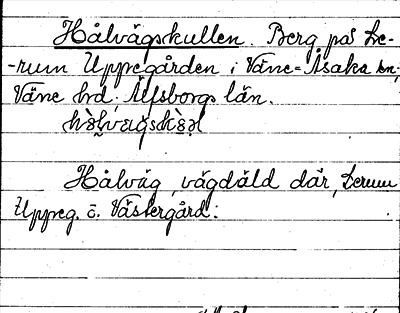 Hålvägskullen. Berg på Le-
-rum Uppegården i Väne-Åsaka sn,
Väne hrd, Älfsborgs län.
Hålväg, vägdäld där, Lerum
Uppeg. o. Västergård.